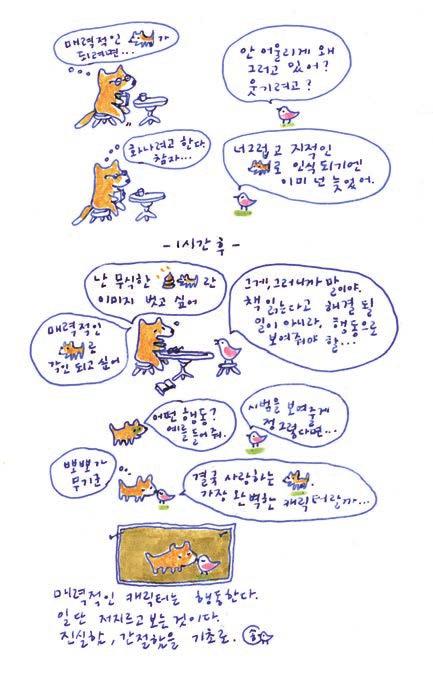 매력적인 가
되려면...
안 어울리게 왜
그러고 있어?
웃기려고?
화나려고 한다.
참자...
너그럽고 지적인
로 인식 되기엔
이미 넌 늦었어.
-1시간 후-
난 무식한 란
이미지 벗고 싶어
그게, 그러니까 말
이야.
책 읽는다고 해결 될
일이 아니라, 행동으로
보여줘야 할...
매력적인
로
각인 되고 싶어
어떤 행동?
예를 들어줘.
시범을 보여줄게
정 그렇다면...
뽀뽀가
무기군
결국 사랑하는 .
가장 완벽한 캐릭터랄까...
매력적인 캐릭터는 행동한다.
일단 저지르고 보는 것이다.
진실함, 간절함을 기초로.